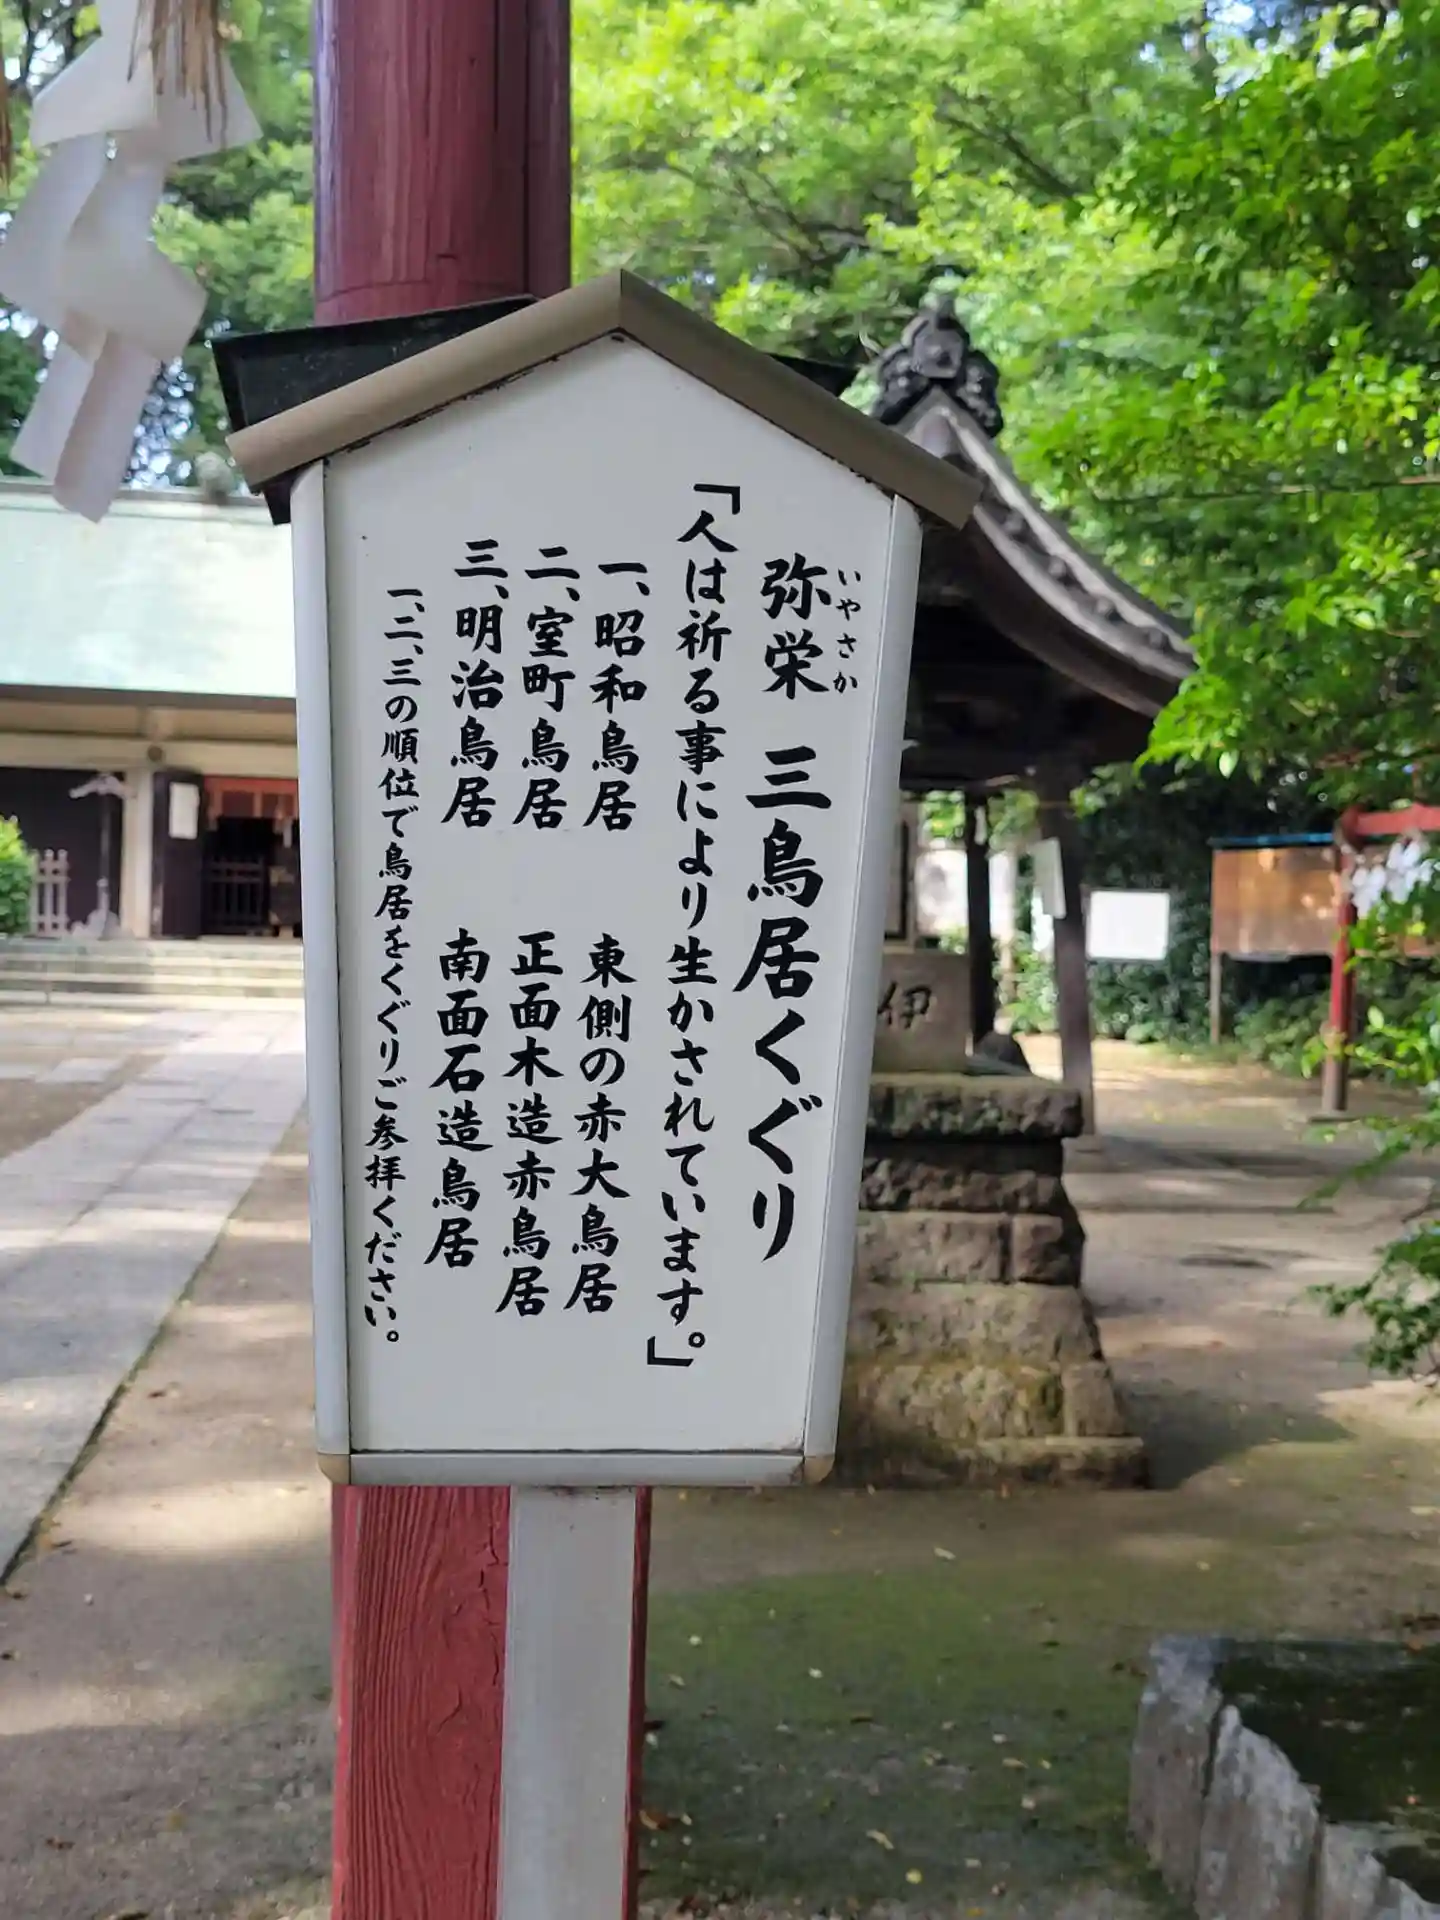 弥栄 三鳥居くぐり
いやさか
「人は祈る事により生かされています。」
一、昭和鳥居 東側の赤大鳥居
二、室町鳥居 正面木造赤鳥居
三、明治鳥居 南面石造鳥居
一、二、三の順位で鳥居をくぐりご参拝ください。
伊